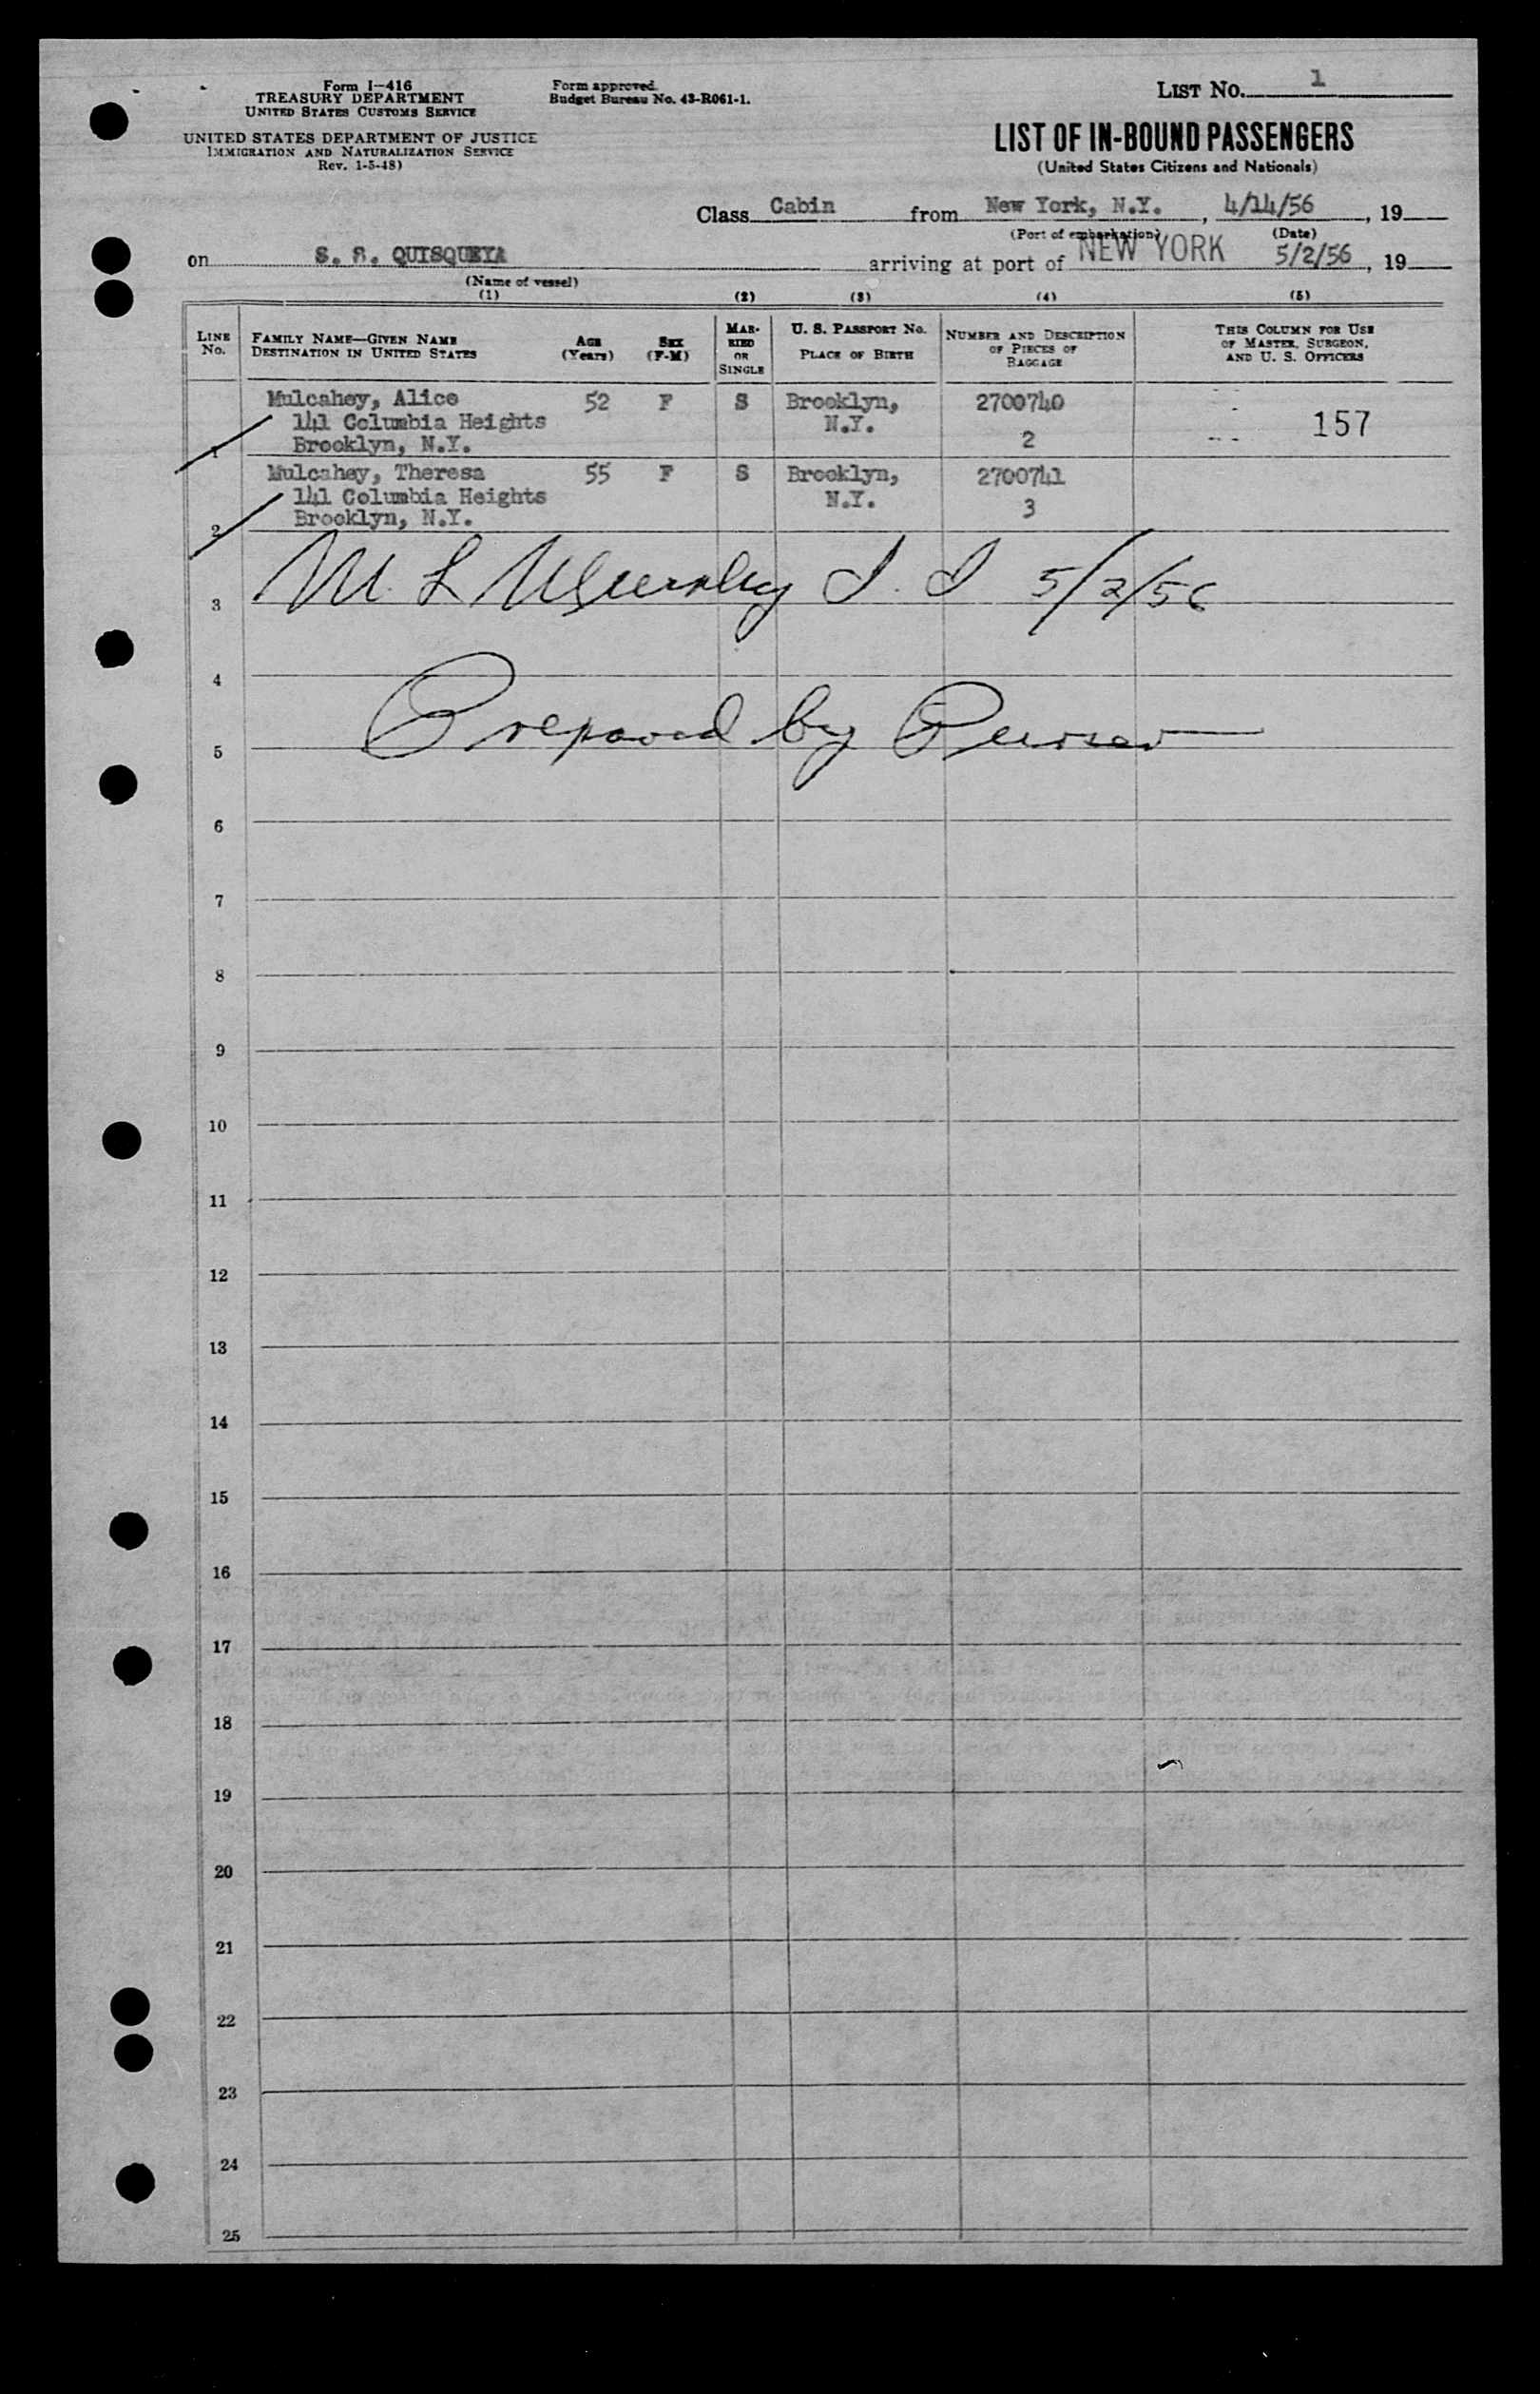 Form I-416
TREASURY DEPARTMENT
UNITED STATES CUSTOMS SERVICE
UNITED STATES DEPARTMENT OF JUSTICE
IMMIGRATION AND NATURALIZATION SERVICE
Rev. 1-5-48)
Form approved.
Budget Bureau No. 43-R061-1.
LIST NO. 1
LIST OF IN-BOUND PASSENGERS
(United States Citizens and Nationals)
Class Cabin from New York, N.Y. , 4/14/56 , 19
(Port of embarkation) (Date)
on S. S. QUISQUEYA arriving at port of NEW YORK 5/2/56 , 19
(Name of vessel)
(1) (2) (3) (4) (5)
LINE No.
FAMILY NAME—GIVEN NAME
DESTINATION IN UNITED STATES
AGE (Years)
SEX (F-M)
MARRIED OR SINGLE
U. S. PASSPORT NO.
PLACE OF BIRTH
NUMBER AND DESCRIPTION OF PIECES OF BAGGAGE
THIS COLUMN FOR USE OF MASTER, SURGEON, AND U. S. OFFICERS
Mulcahey, Alice 52 F S Brooklyn, 2700740
141 Columbia Heights N.Y. 157
1 Brooklyn, N.Y. 2
Mulcahey, Theresa 55 F S Brooklyn, 2700741
141 Columbia Heights N.Y.
2 Brooklyn, N.Y. 3
3 M. L. I. I 5/2/56
4
Prepared by Purser
5
6
7
8
9
10
11
12
13
14
15
16
17
18
19
20
21
22
23
24
25